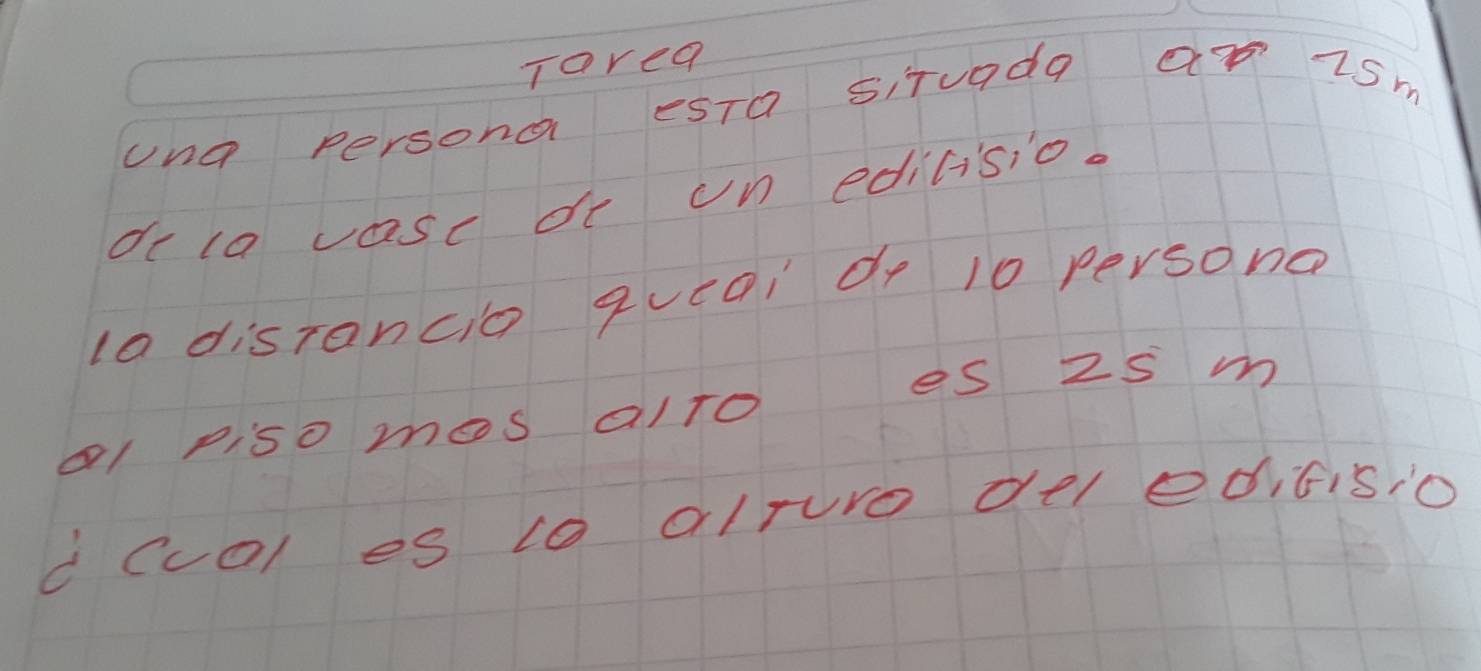 Tarea
una persona esta situada a 15m
de la vase de un edifisio.
la distancia que ai de la persona
al piso mas alto es 25 m
¿ Cual es la altura del edifisio